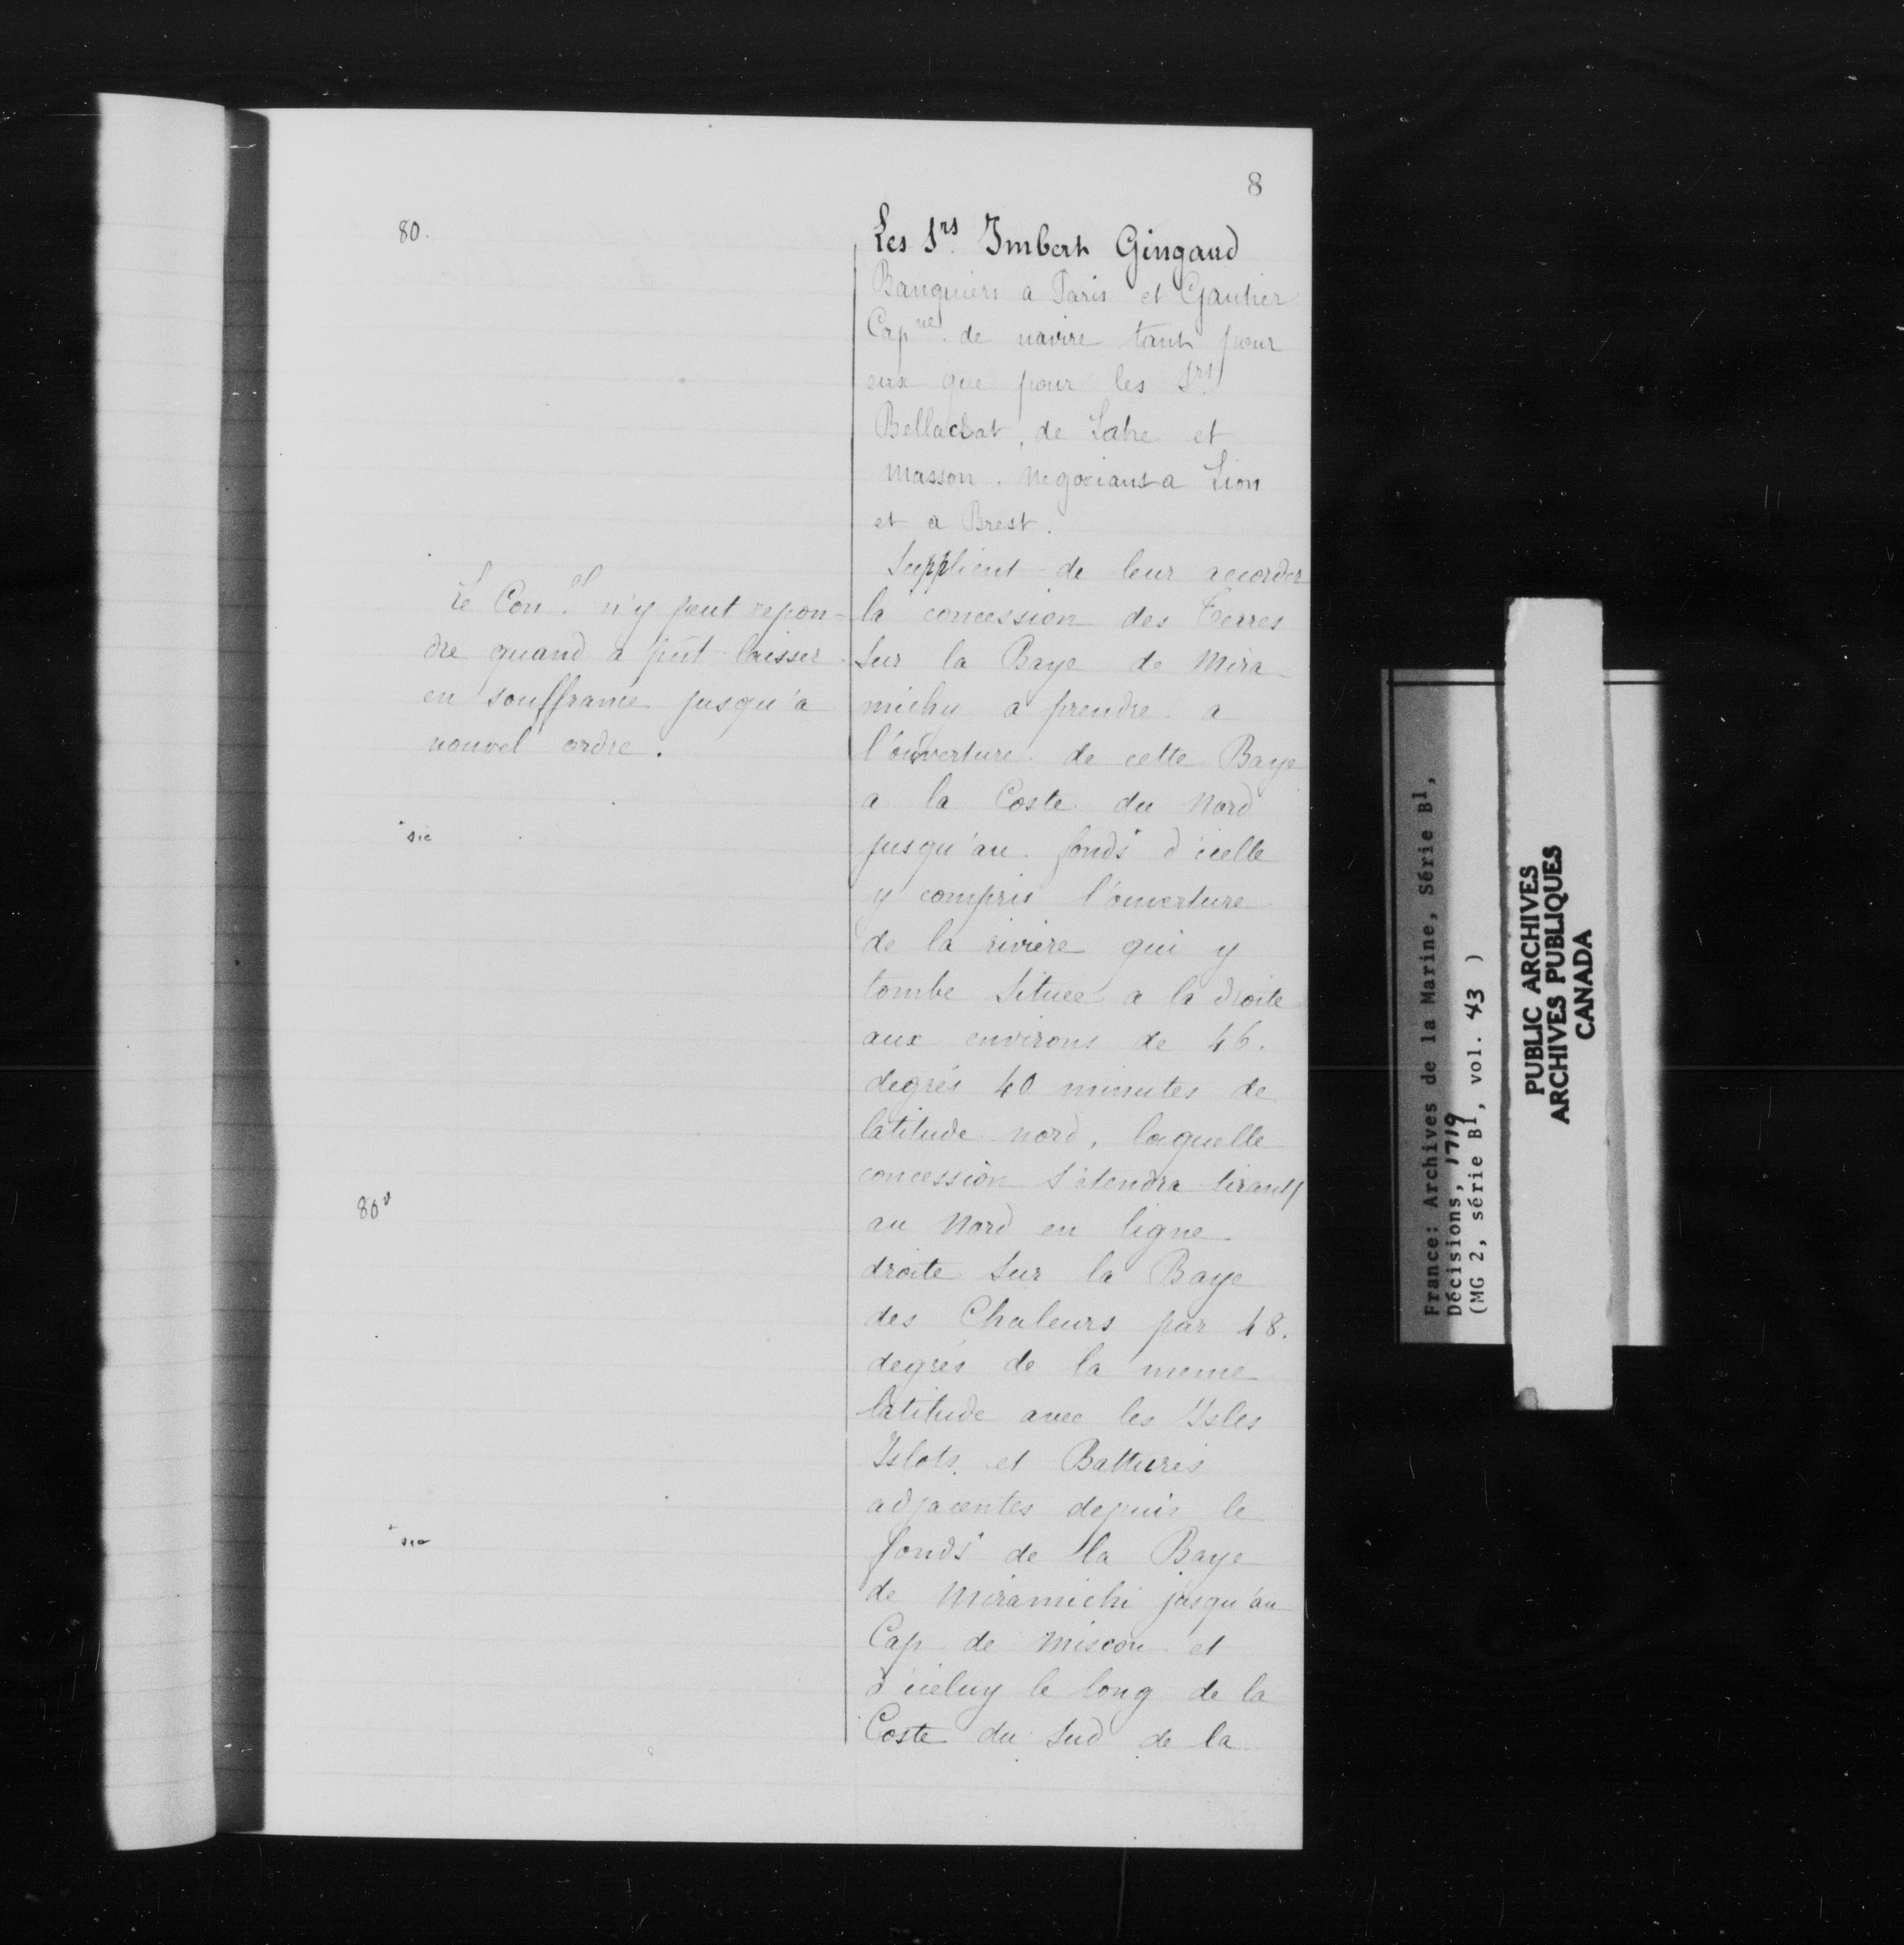 8
80.
Les Srs. Imbert Gingaud
Banquiers a Paris et Gautier
Capne. de navire tant pour
eux que pour les Srs.
Bellachat, de Latre et
masson. negocians a Lion
et a Brest.
Supplient de leur accorder
la concession des Terres
Sur la Baye de Mira-
michy a prendre a
l'ouverture de cette Baye
a la Coste du Nord
jusqu'au fonds* d'icelle
y compris l'ouverture
de la riviere qui y
tombe Située a la droite
aux environs de 46.
degrés 40 minutes de
latitude nord, laquelle
concession S'étendra tirant
au Nord en ligne
droite Sur la Baye
des Chaleurs par 48.
degrés de la meme
latitude avec les Isles
Islots et Battures
adjacentes depuis le
fonds* de la Baye
de Miramichi jusqu'au
Cap de Miscou et
d'iceluy le long de la
Coste du Sud de la
Le Con.el n'y peut repon-
dre quand a pnt laisser
en souffrance jusqu'a
nouvel ordre.
*sic
80v
*sic
France: Archives de la Marine, Série B1,
Décisions, 1719
(MG 2, série B1, vol. 43 )
PUBLIC ARCHIVES
ARCHIVES PUBLIQUES
CANADA